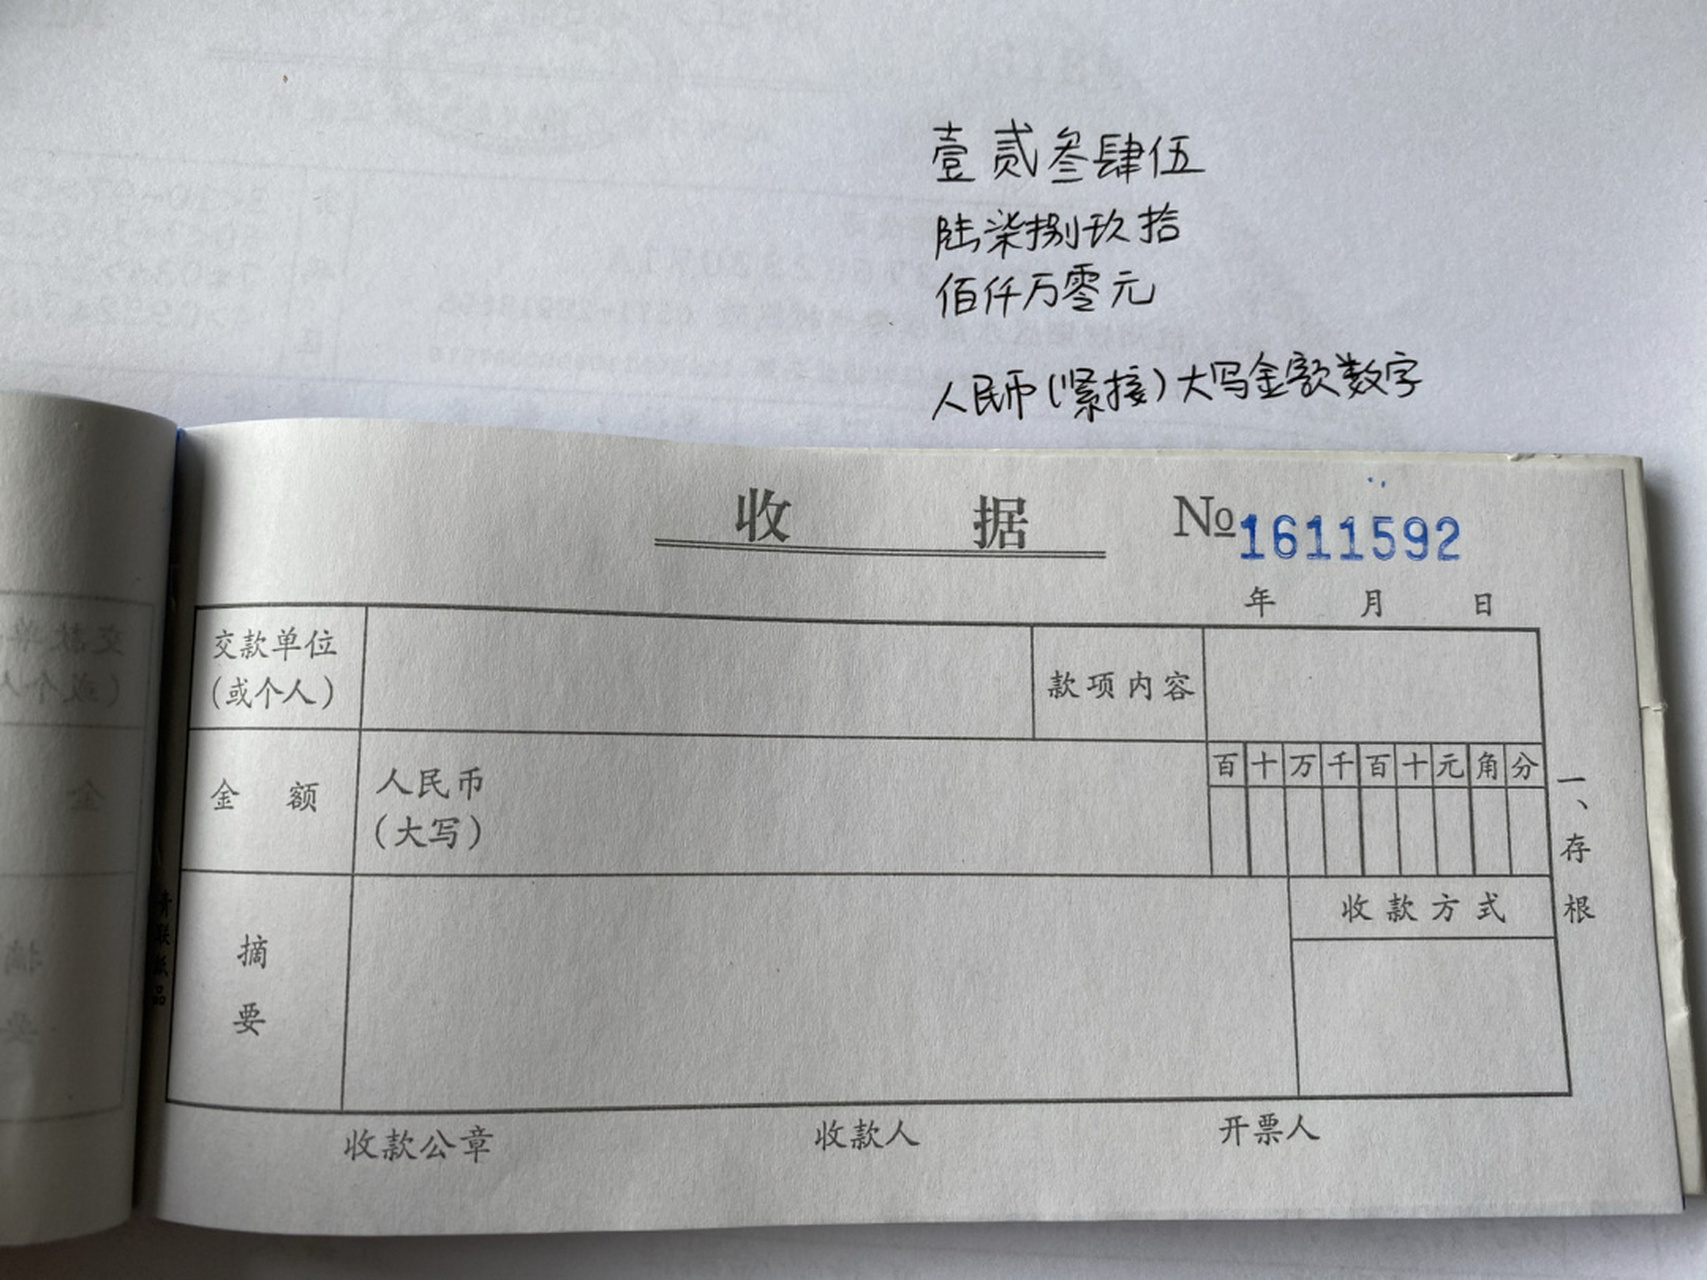 壹贰叁肆伍
陆柒捌玖拾
佰仟万零元
人民币(紧接)大写金额数字
收 据 №1611592
年 月 日
交款单位
(或个人)
款项内容
金 额
人民币
(大写)
百十万千百十元角分
摘
要
收款方式
一、存根
收款公章 收款人 开票人